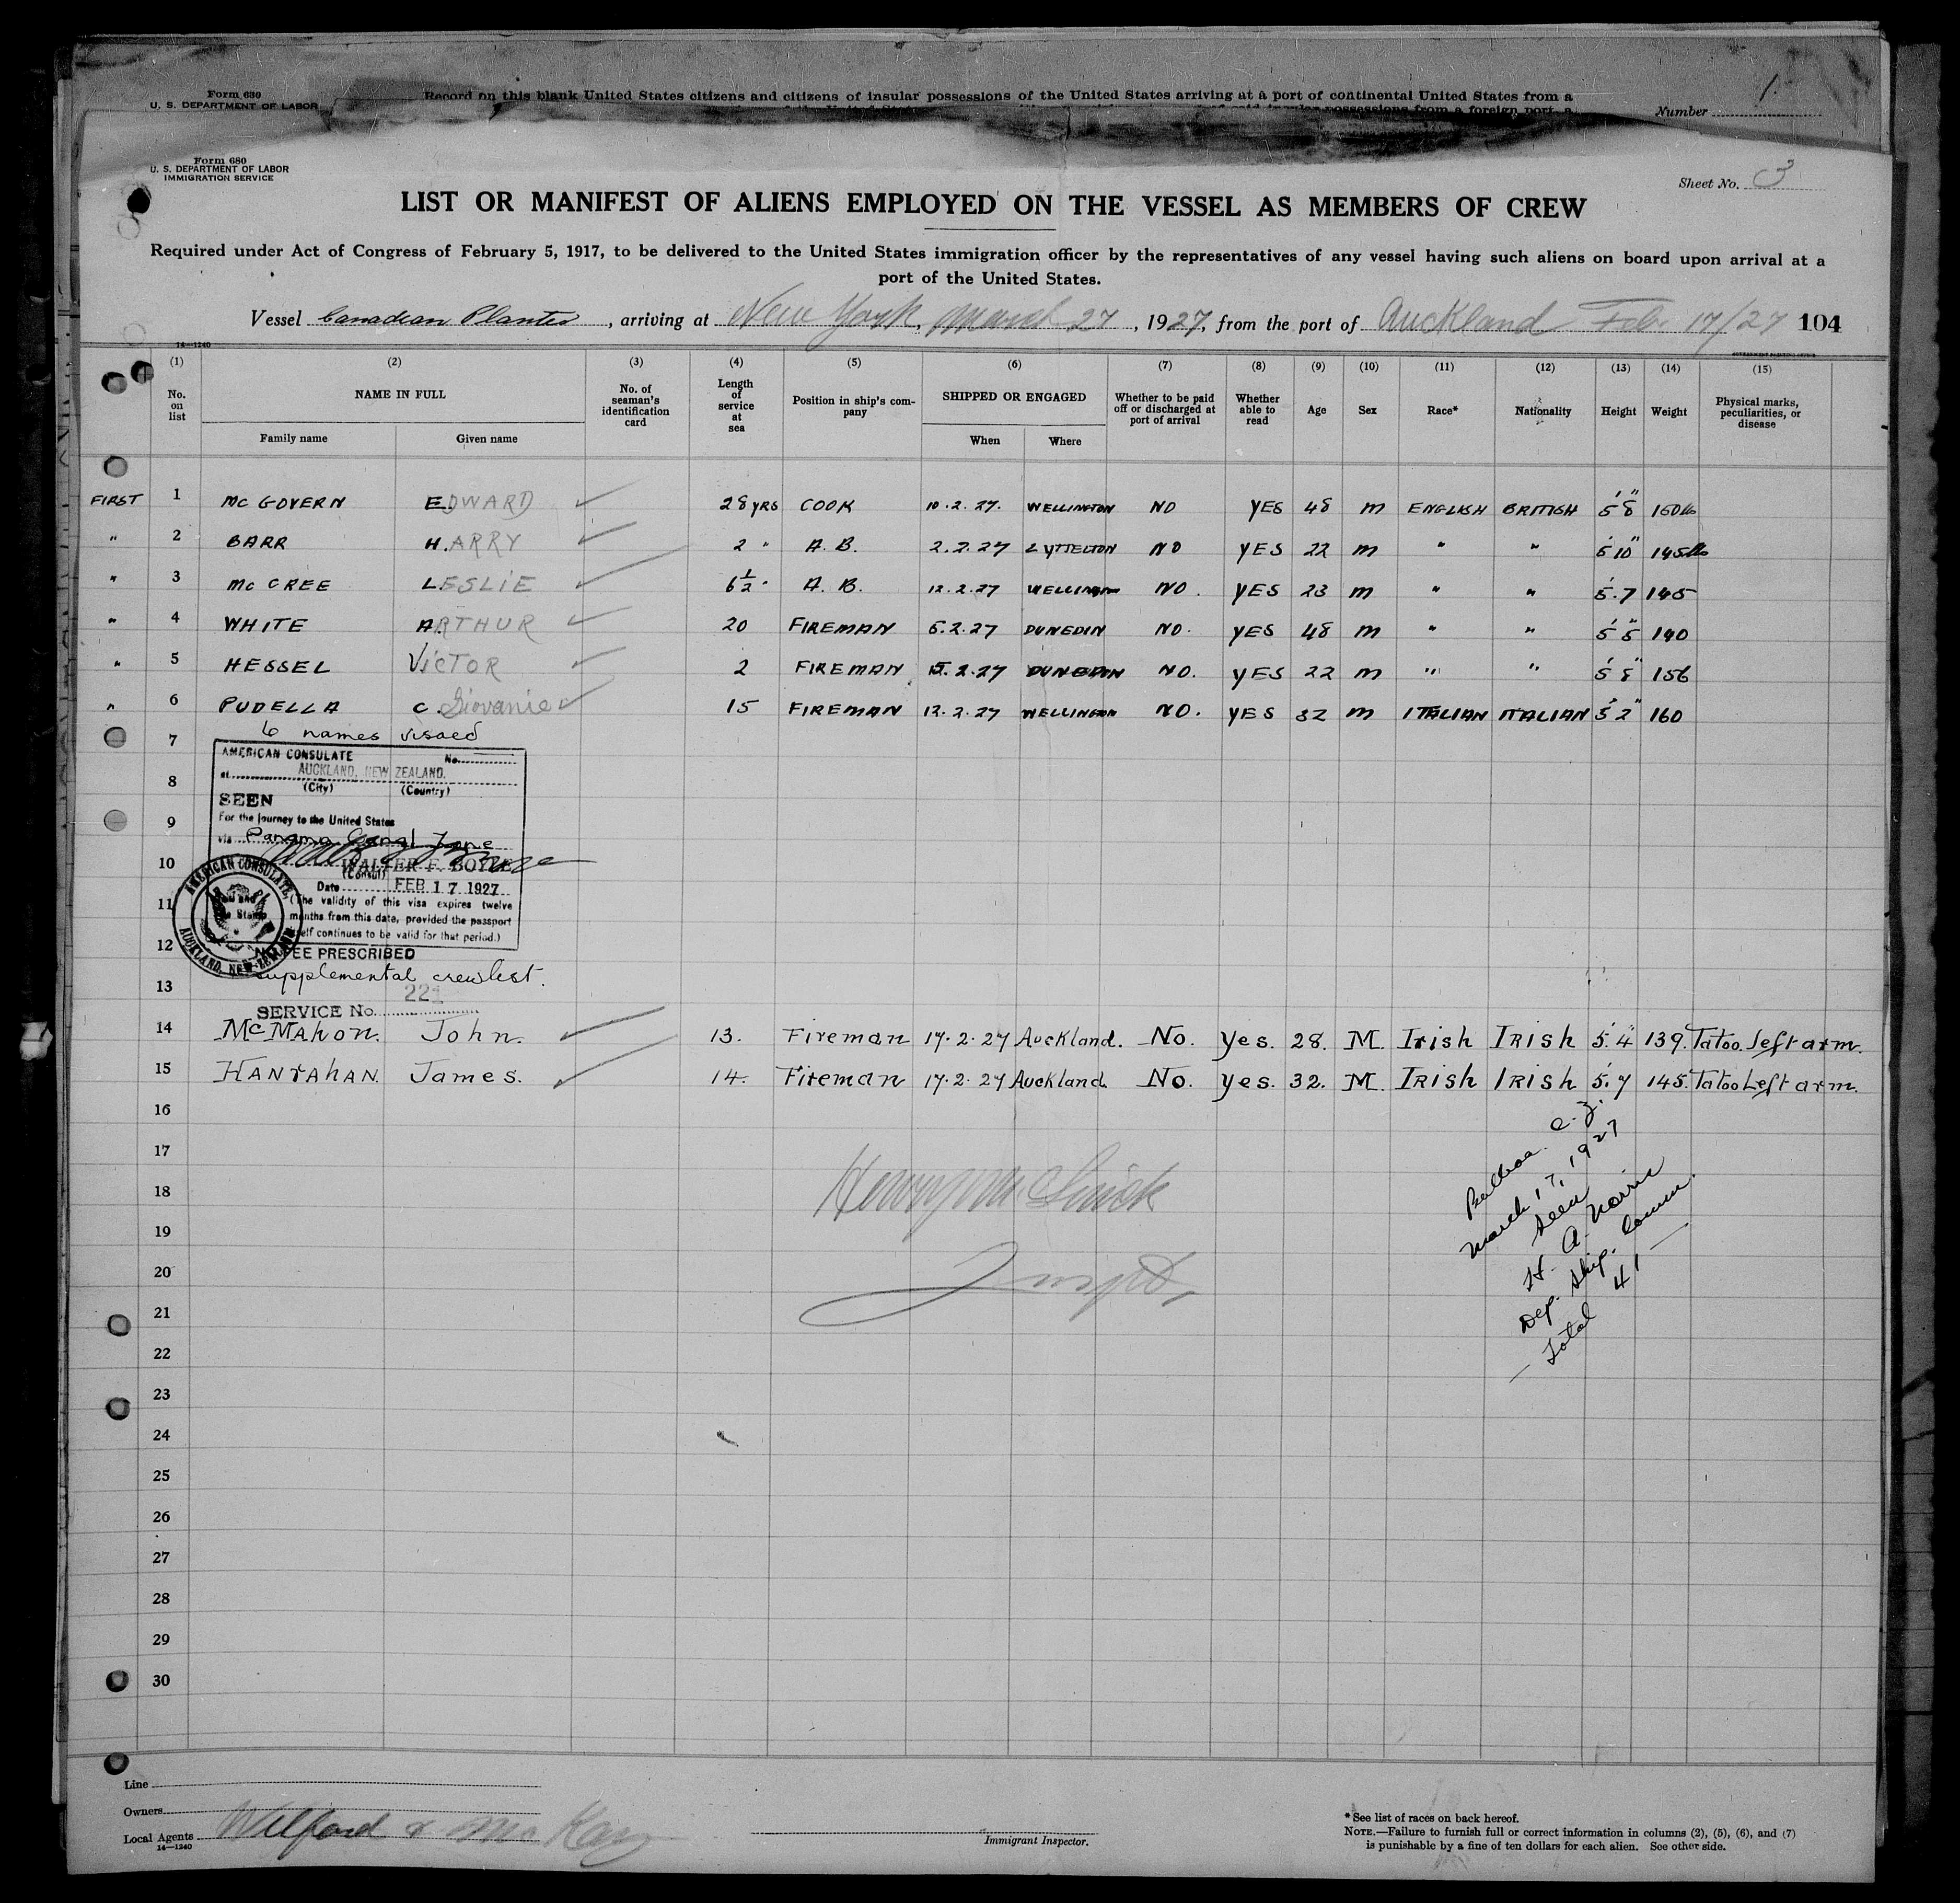 Form 630
U. S. DEPARTMENT OF LABOR
Record on this blank United States citizens and citizens of insular possessions of the United States arriving at a port of continental United States from a
Number 1
Form 680
U. S. DEPARTMENT OF LABOR
IMMIGRATION SERVICE
Sheet No. 3
LIST OR MANIFEST OF ALIENS EMPLOYED ON THE VESSEL AS MEMBERS OF CREW
Required under Act of Congress of February 5, 1917, to be delivered to the United States immigration officer by the representatives of any vessel having such aliens on board upon arrival at a
port of the United States.
Vessel Canadian Planter, arriving at New York, March 27, 1927, from the port of Auckland Feb. 17/27 104
14—1240
(1) (2) (3) (4) (5) (6) (7) (8) (9) (10) (11) (12) (13) (14) (15)
No. on list NAME IN FULL No. of seaman's identification card Length of service at sea Position in ship's company SHIPPED OR ENGAGED Whether to be paid off or discharged at port of arrival Whether able to read Age Sex Race* Nationality Height Weight Physical marks, peculiarities, or disease
Family name Given name When Where
FIRST 1 McGOVERN EDWARD 28 YRS COOK 10.2.27. WELLINGTON NO YES 48 M ENGLISH BRITISH 5'8" 150 lb
" 2 BARR H.ARRY 2 " A.B. 2.2.27 LYTTELTON NO YES 22 M " " 5'10" 145 lb
" 3 McCREE LESLIE 6½ " A.B. 12.2.27 WELLINGTON NO. YES 23 M " " 5'.7 145
" 4 WHITE ARTHUR 20 FIREMAN 5.2.27 DUNEDIN NO. YES 48 M " " 5'5" 140
" 5 HESSEL VICTOR 2 FIREMAN 5.2.27 DUNEDIN NO. YES 22 M " " 5'8" 156
" 6 PUDELLA C. Giovanie 15 FIREMAN 12.2.27 WELLINGTON NO. YES 32 M ITALIAN ITALIAN 5'2" 160
6 names visaed
7
AMERICAN CONSULATE No.
at AUCKLAND, NEW ZEALAND.
(City) (Country)
8
SEEN
For the journey to the United States
9
via Panama Canal Zone
10
WALTER F. BOYLE
(Consul)
Date FEB 17 1927
11
(The validity of this visa expires twelve
months from this date, provided the passport
itself continues to be valid for that period.)
AMERICAN CONSULATE, AUCKLAND, NEW ZEALAND
12
NO FEE PRESCRIBED
supplemental crew list.
13
SERVICE No. 221
14 McMahon. John. 13. Fireman 17.2.27 Auckland. No. Yes. 28. M. Irish Irish 5'.4" 139. Tatoo Left arm.
15 Hanrahan. James. 14. Fireman 17.2.27 Auckland. No. Yes. 32. M. Irish Irish 5'.7 145. Tatoo Left arm.
16
17
18
19
20
21
22
23
24
25
26
27
28
29
30
Balboa C.Z.
March 17, 1927
Seen
H. A. Norris
Dep. Ship. Comm.
— Total 41 —
Line
Owners
Local Agents Wilford & McKay
14—1240
Immigrant Inspector.
* See list of races on back hereof.
NOTE.—Failure to furnish full or correct information in columns (2), (5), (6), and (7)
is punishable by a fine of ten dollars for each alien. See other side.